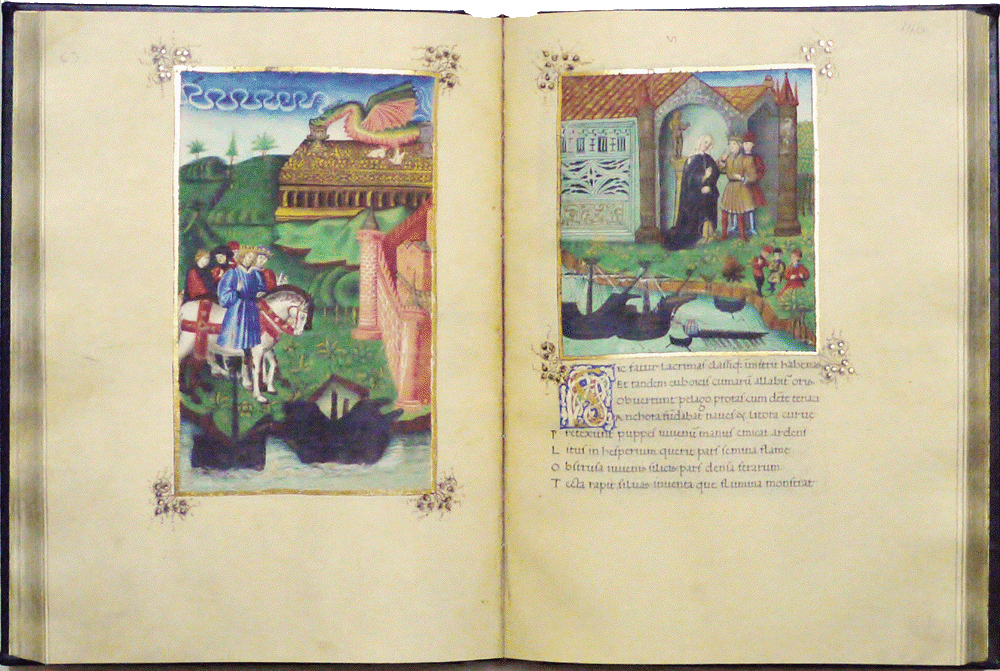 63
Sic fatur lacrimas classiq; inmitit habenas
Et tandem euboicis cumarũ allabit oris
Obvertunt pelago proras cum dẽte tenaci
Anchora fũdabat naves & litora curve
Pretexunt puppes iuvenũ manus emicat ardens
Litus in hesperium querit pars semina flame
Obstrusa in venis silicis pars densa ferarum
Tecta rapit silvas inventa que flumina monstrat